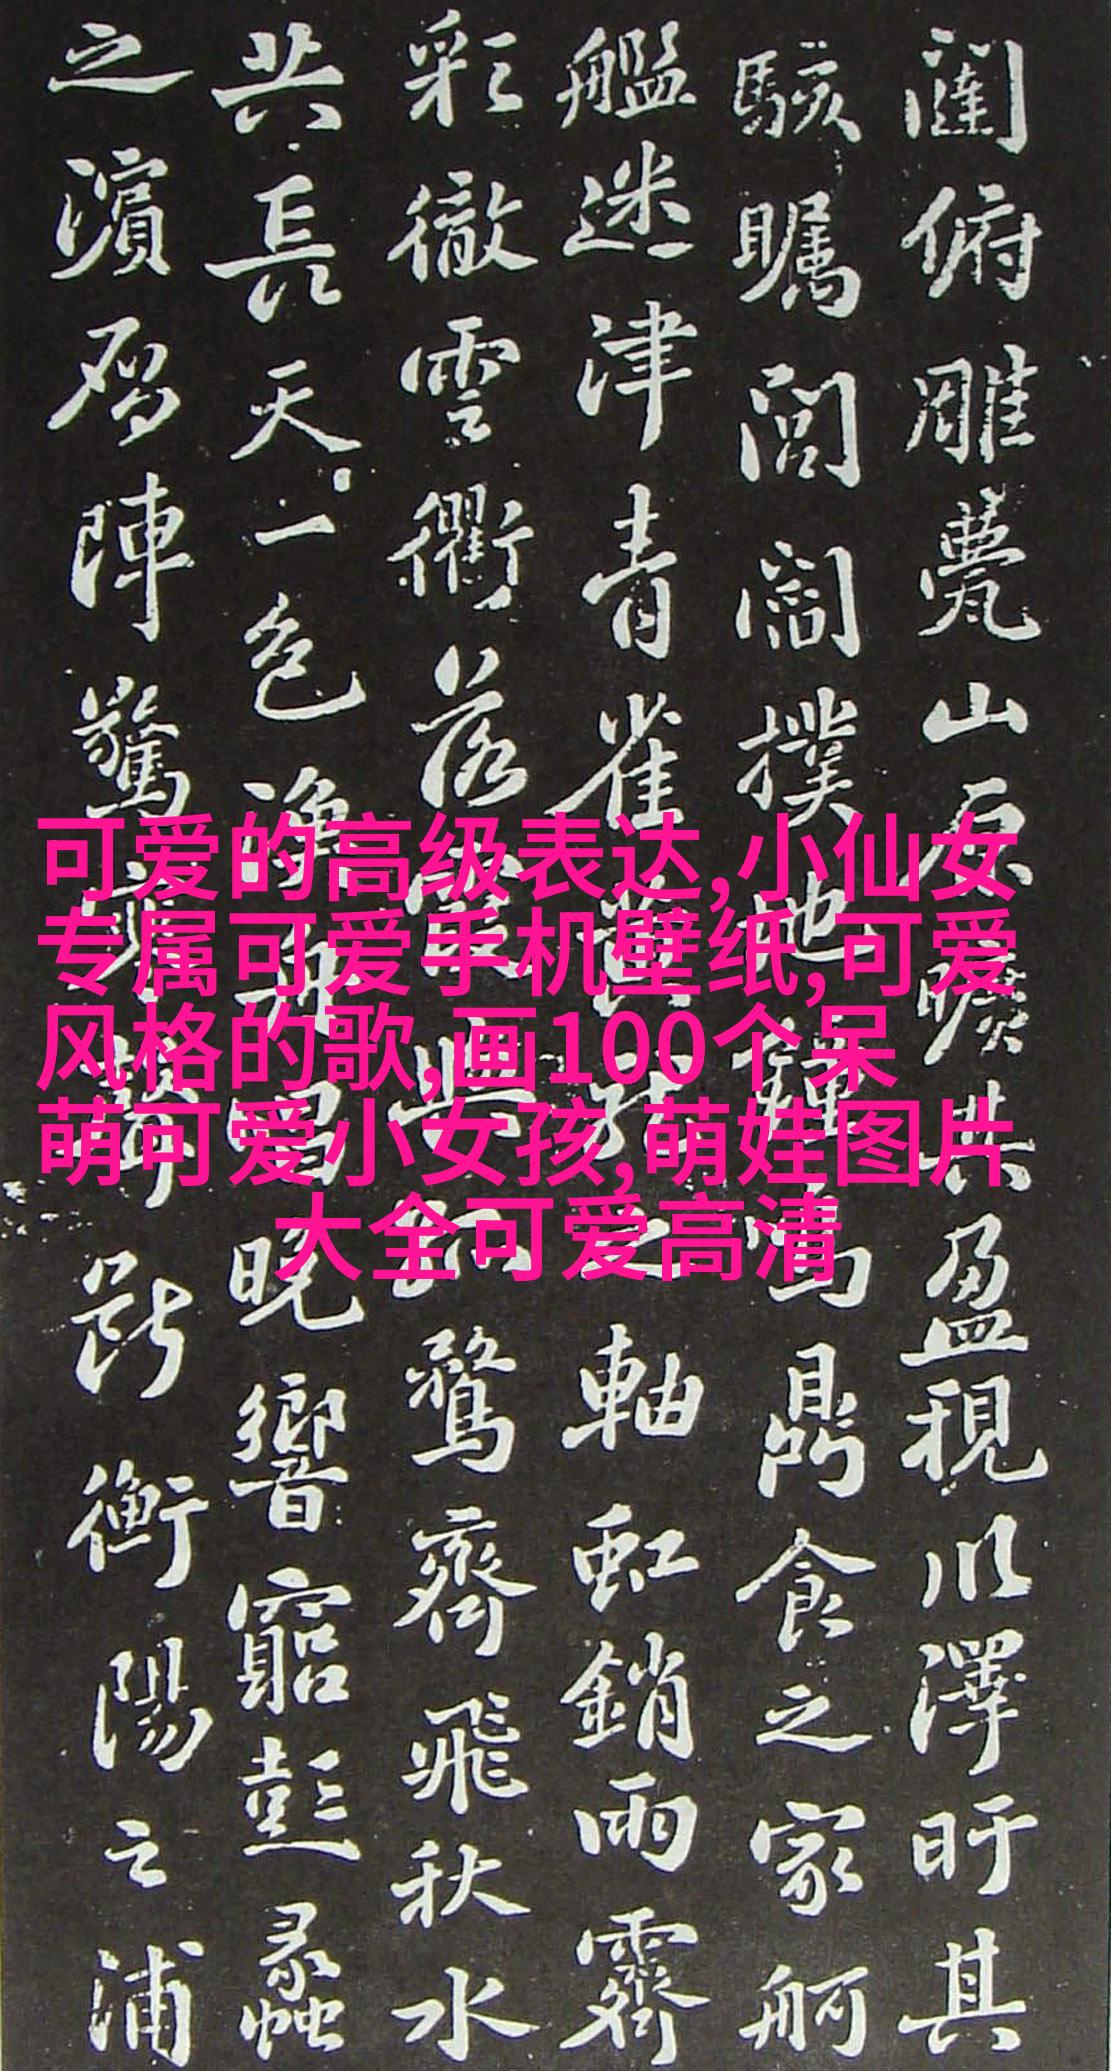 闥俯雕甍山原曠其盈視川澤盱其
駭矚閭閻撲地鐘鳴鼎食之家舸
艦迷津青雀黃龍之軸虹銷雨霽
彩徹雲衢落霞與孤鶩齊飛秋水
共長天一色漁舟唱晚響窮彭蠡
之濱雁陣驚寒聲斷衡陽之浦
可爱的高级表达,小仙女
专属可爱手机壁纸,可爱
风格的歌,画100个呆
萌可爱小女孩,萌娃图片
大全可爱高清